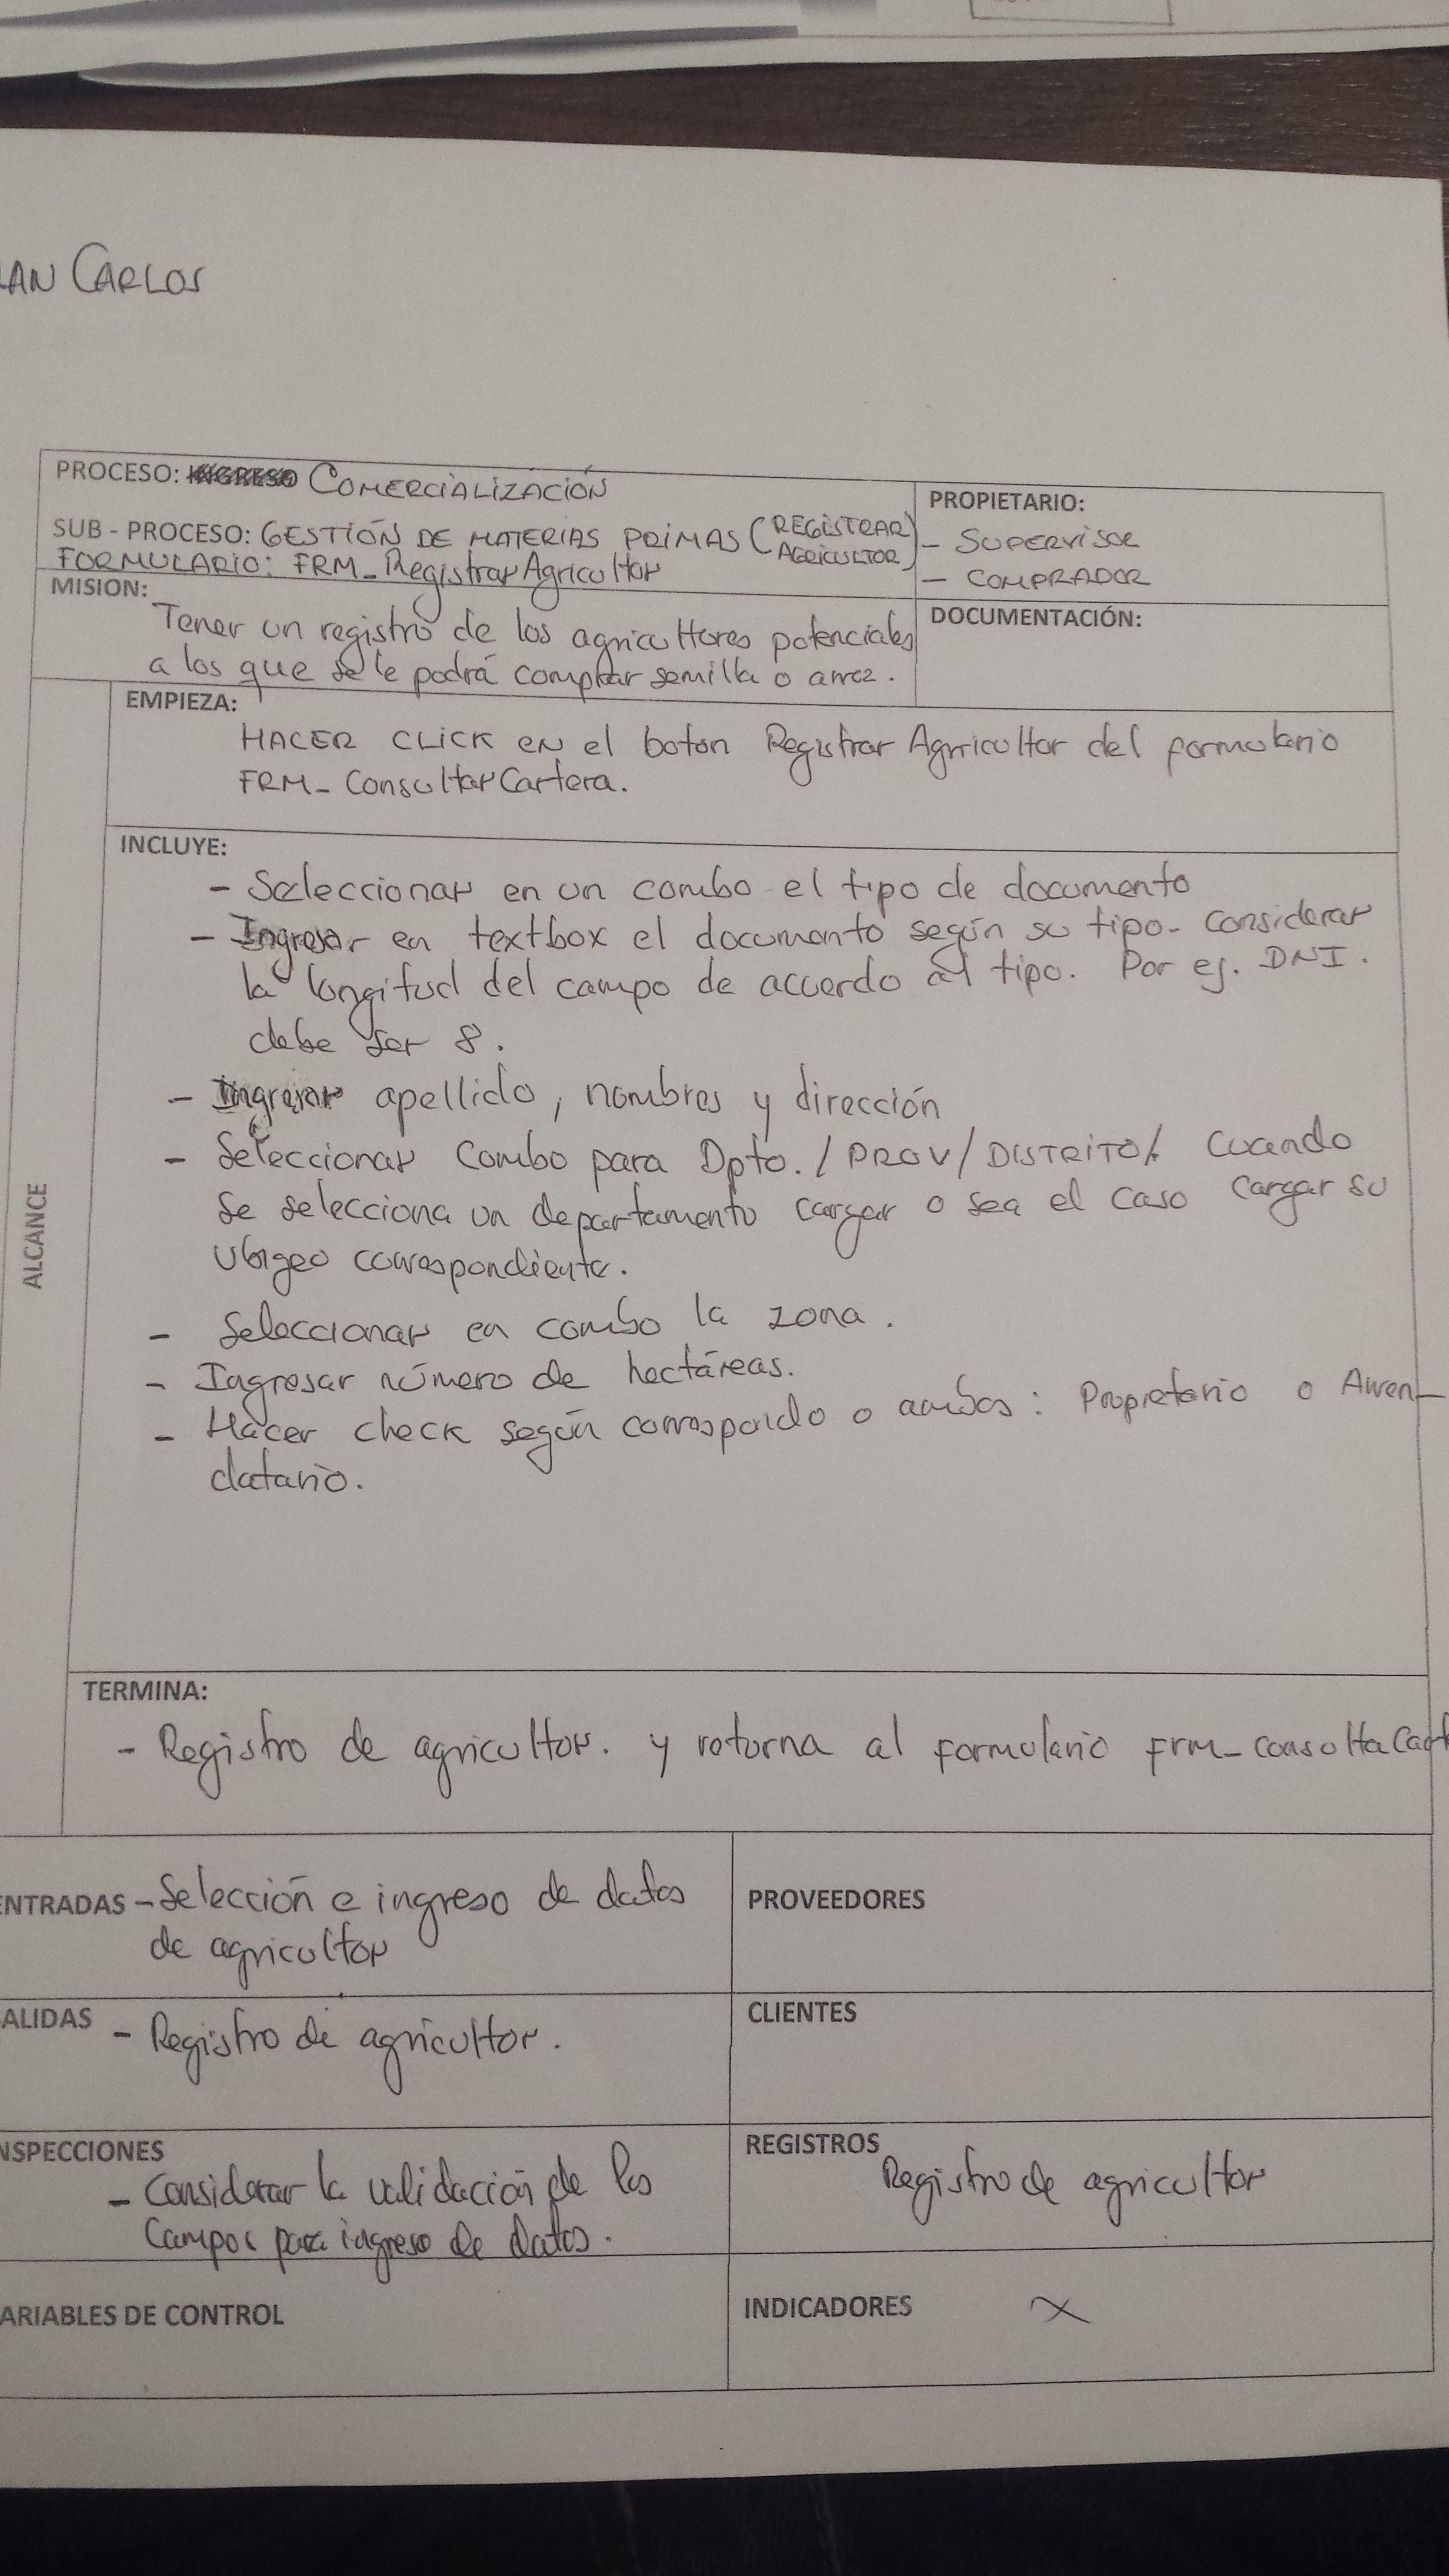 LAN CARLOS
PROCESO: INGRESO COMERCIALIZACIÓN
SUB - PROCESO: GESTIÓN DE MATERIAS PRIMAS (REGISTRAR AGRICULTOR)
FORMULARIO: FRM_RegistrarAgricultor
PROPIETARIO:
- SUPERVISOR
- COMPRADOR
MISION:
Tener un registro de los agricultores potenciales
a los que se le podrá comprar semilla o arroz.
DOCUMENTACIÓN:
ALCANCE
EMPIEZA:
HACER CLICK EN el boton Registrar Agricultor del formulario
FRM_ConsultarCartera.
INCLUYE:
- Seleccionar en un combo el tipo de documento
- Ingresar en textbox el documento según su tipo. Considerar
la longitud del campo de acuerdo al tipo. Por ej. DNI.
debe ser 8.
- Ingresar apellido, nombres y dirección
- Seleccionar Combo para Dpto. / PROV / DISTRITO/. Cuando
se selecciona un departamento cargar o sea el caso cargar su
Ubigeo correspondiente.
- Seleccionar en combo la zona.
- Ingresar número de hectáreas.
- Hacer check según correspondo o ambos: Propietario o Arren-
datario.
TERMINA:
- Registro de agricultor. y retorna al formulario Frm_ConsultaCart
ENTRADAS - Selección e ingreso de datos
de agricultor
PROVEEDORES
ALIDAS - Registro de agricultor.
CLIENTES
NSPECCIONES
- Considerar la validación de los
Campos para ingreso de datos.
REGISTROS
Registro de agricultor
ARIABLES DE CONTROL
INDICADORES X